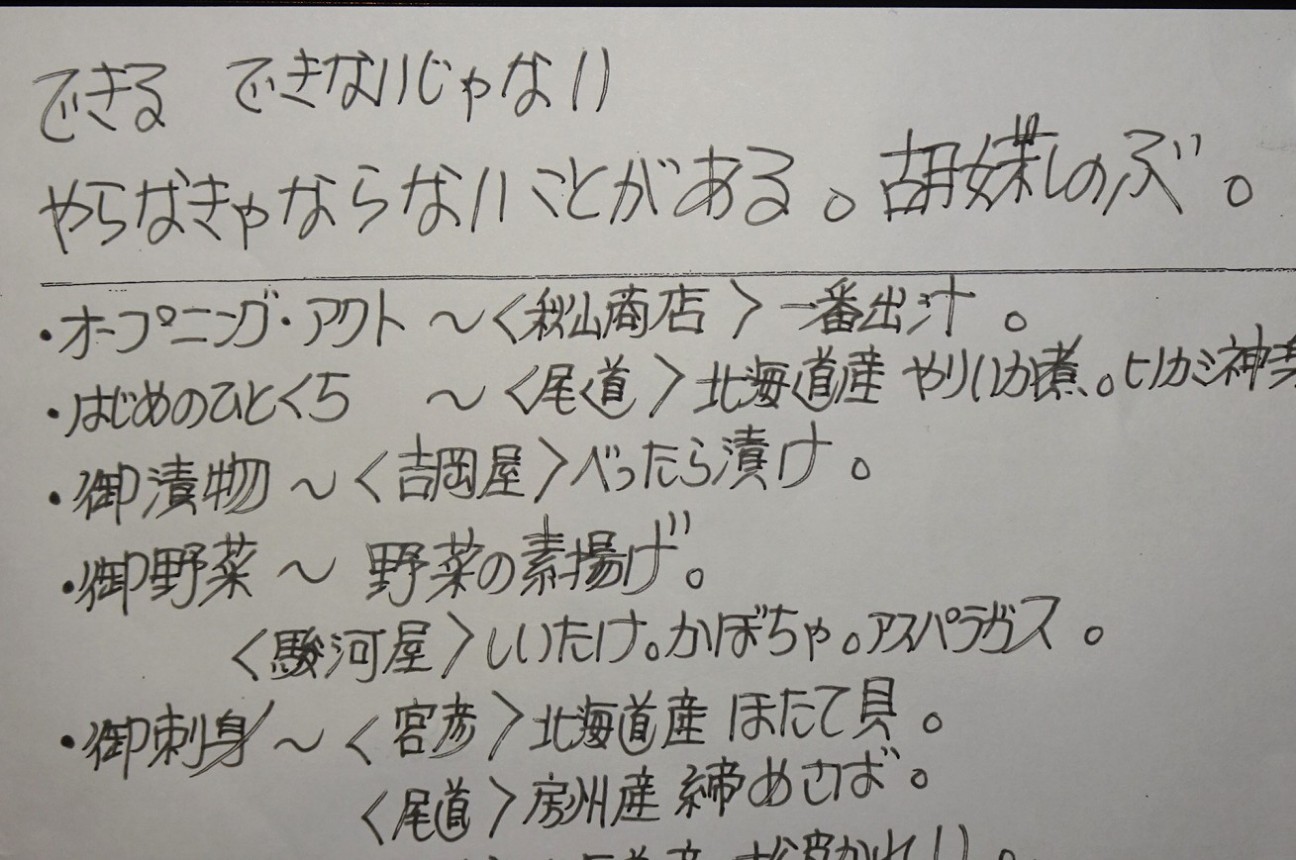 できる できないじゃない
やらなきゃならないことがある。胡蝶しのぶ。
・オープニング・アクト ～〈秋山商店〉一番出汁。
・はじめのひとくち ～〈尾道〉北海道産 やりいか煮。ヒノカミ神
・御漬物～〈吉岡屋〉べったら漬け。
・御野菜～ 野菜の素揚げ。
〈駿河屋〉しいたけ。かぼちゃ。アスパラガス。
・御刺身～〈宮彦〉北海道産 ほたて貝。
〈尾道〉房州産 締めさば。